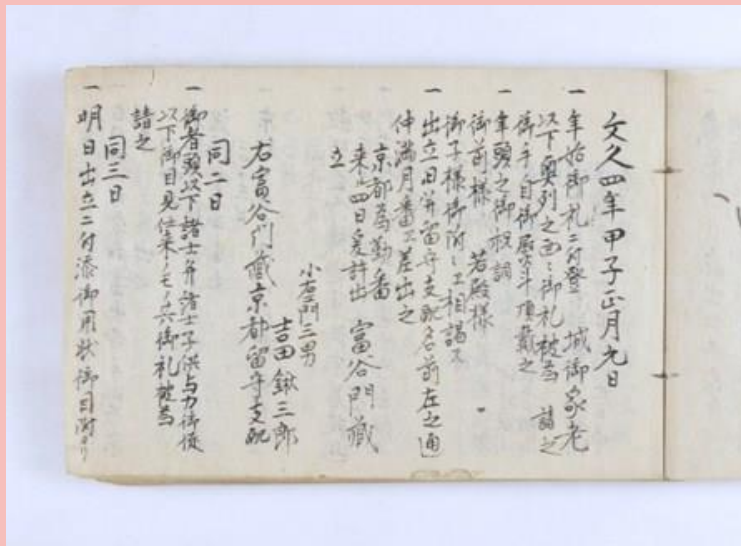 文久四年甲子正月元日
一 年始御礼ニ付登 城御家老
以下奥列之面々御礼被為 請之
御手自御熨斗頂戴之
一 年頭之御祝詞
御前様 若殿様
御子様御附々江相謁ス
一 出立日并留守支配名前左之通
仲満月番江差出之
京都為勤番
来ル四日爰許出 富谷門蔵
立
小右衛門三男
吉田鍬三郎
右富谷門蔵京都留守支配
同二日
一 御者頭以下諸士并諸士子供与力御徒
以下御目見仕来ノモノ共御礼被為
請之
同三日
一 明日出立ニ付添御用状御目附ゟ